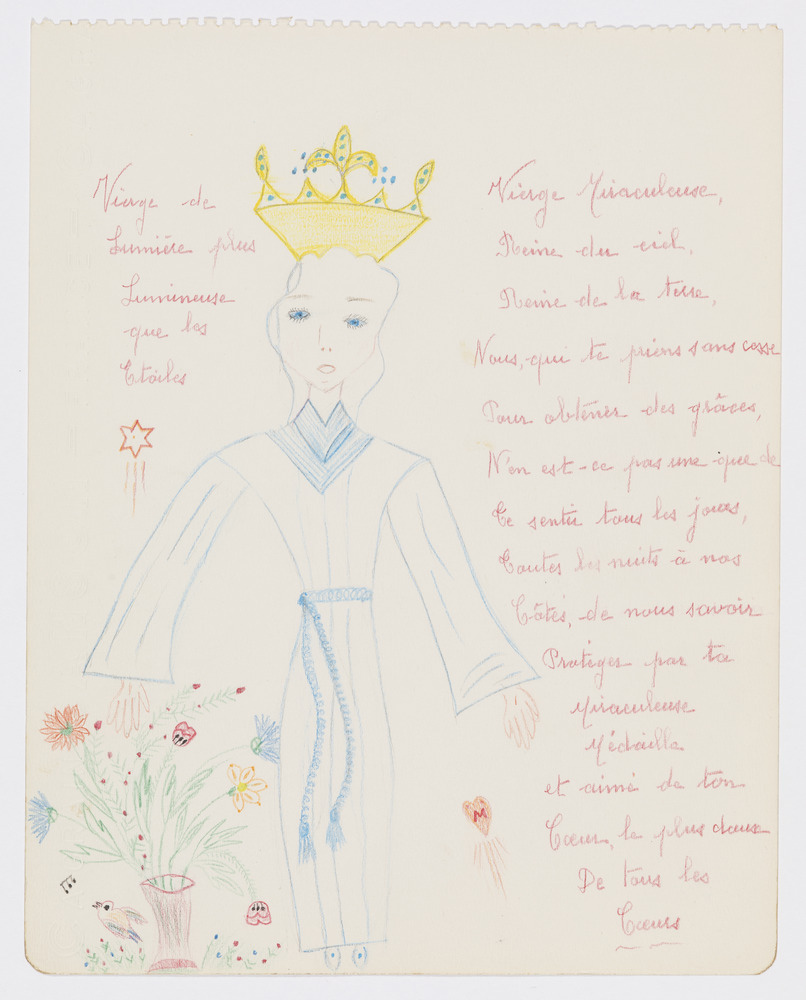 Vierge de
Lumière plus
Lumineuse
que les
Etoiles
Vierge Miraculeuse,
Reine du ciel,
Reine de la terre,
Nous, qui te prions sans cesse
Pour obtenir des grâces,
N'en est-ce pas une que de
Te sentir tous les jours,
Toutes les nuits à nos
Côtés, de nous savoir
Protéger par ta
Miraculeuse
Médaille
et aimé de ton
Cœur, le plus doux
De tous les
Cœurs
M